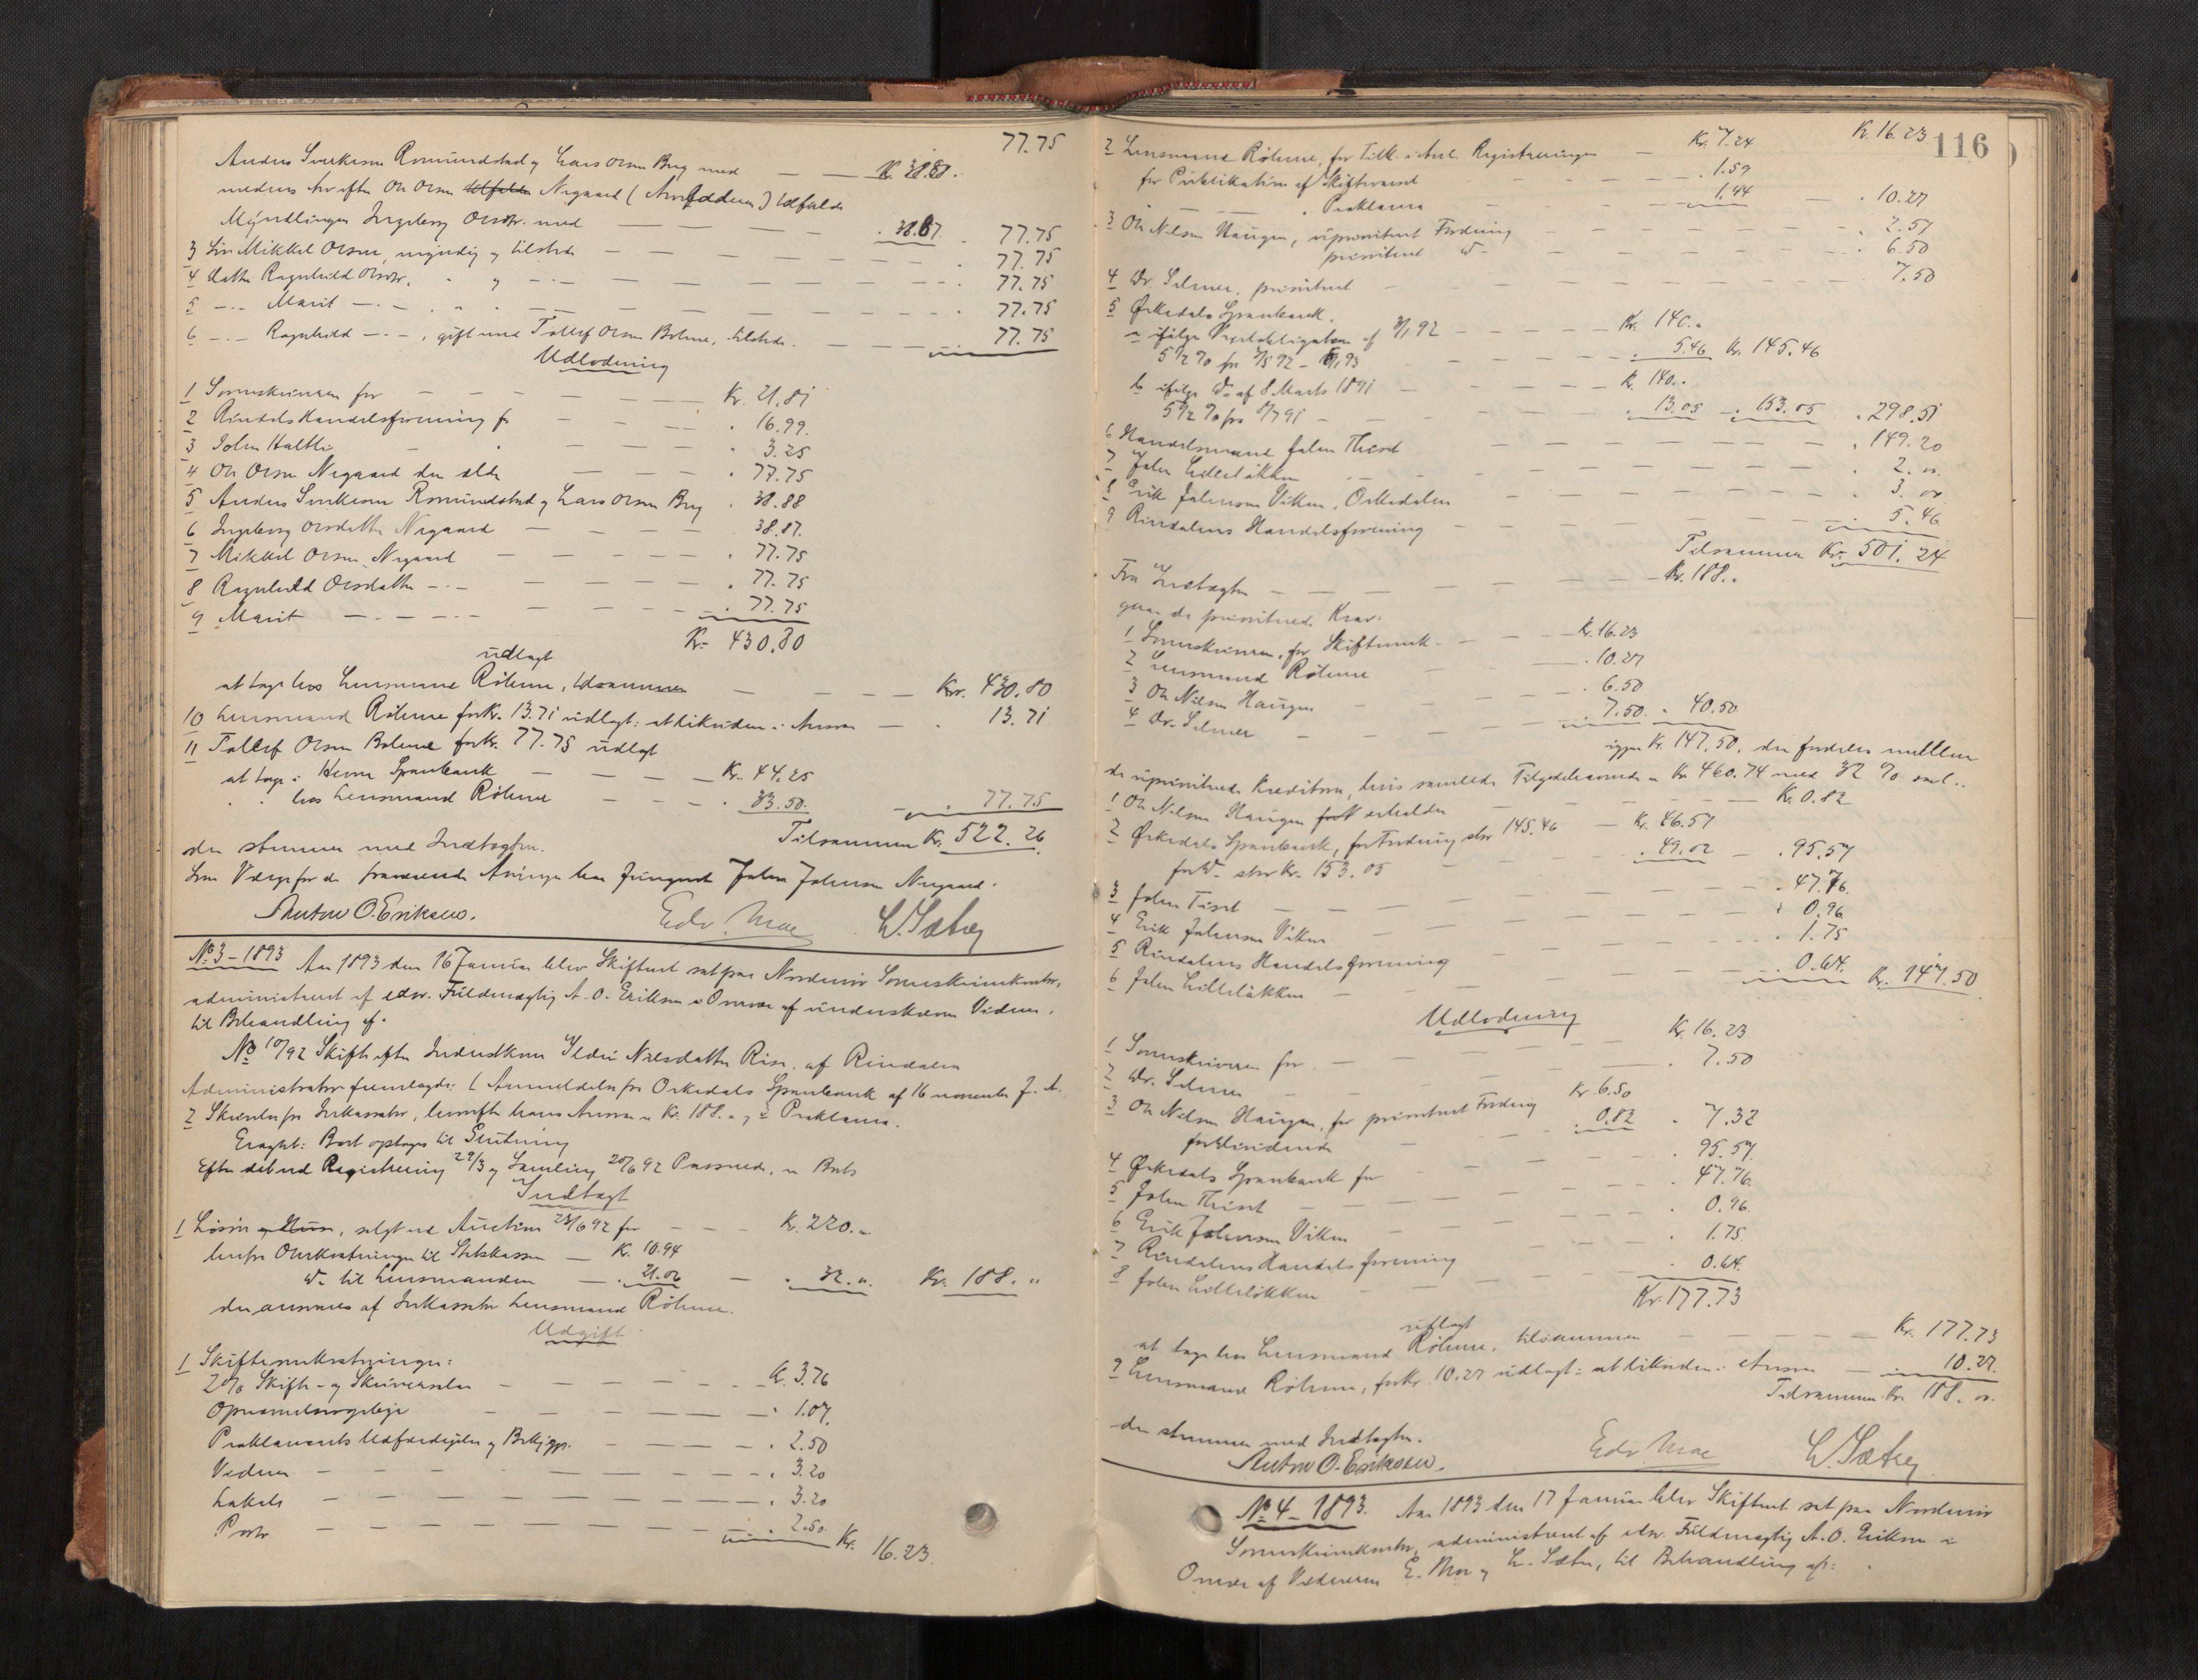 77.75
Anders Sverkesen Romundstad og Lars Olsen Berg med — — K. 38.88.
medens Arv efter Ole Olsen Nergaard ( ) tilfalder
Myndlingen Ingeborg Olsdtr. med — — — — — . 38.87. . 77.75
3 Søn Mikkel Olsen, myndig og tilstede — — — — — . 77.75
4 datter Ragnhild Olsdtr. " og — " — — — — . 77.75
5 — " — Marit — " — " " " — — — — . 77.75
6 — " — Ragnhild — " —, gift med Tollef Olsen Bolme, tilstede. — — — 77.75
Udlodning
1 Sorenskriveren for — — — — — Kr. 21.81
2 Rindals Handelsforening for — — — . 16.99.
3 John Haltli — " — — — . 3.25
4 Ole Olsen Nergaard den ældre — — — . 77.75
5 Anders Sverkesen Romundstad og Lars Olsen Berg . 38.88
6 Ingeborg Olsdatter Nergaard — — — 38.87.
7 Mikkel Olsen Nergaard — — — — . 77.75
8 Ragnhild Olsdatter — " — — — — . 77.75
9 Marit — " — " — — — — . 77.75
Kr. 430.80
udlagt
at tage hos Lensmand Röhme, tilsammen — — — — Kr. 430.80
10 Lensmand Röhme for Kr. 13.71 udlagt: at likvidere i Ansvar — . 13.71
11 Tollef Olsen Bolme for Kr. 77.75 udlagt
at tage i Hevne Sparebank — — — Kr. 44.25
" " hos Lensmand Röhme — — — . 33.50. — . 77.75
Tilsammen Kr. 522.26
der stemmer med Indtægten.
Som Værge for de fraværende Arvinger har fungeret John Johnsen Nergaard.
Anton O. Eriksen. Edv. Moe L. Sæther
No 3 - 1893 Aar 1893 den 16 Januar blev Skifteret sat paa Nordmør Sorenskriverkontor,
administreret af edsv. Fuldmægtig A. O. Eriksen i Overvær af underskrevne Vidner,
til Behandling af:
No 10/92 Skifte efter Inderstkone Ildri Nilsdatter Risø af Rindalen
Administrator fremlagde: 1 Anmeldelse fra Orkedals Sparebank af 16 november f. A.
2 Skrivelse fra Inkassator, hvorefter hans Ansvar er Kr. 188. " og 3 Proklama.
Eragtet: Boet optages til Slutning
Efter det ved Registrering 29/3 og Samling 20/6 92 Passerede, er Boets
Indtægt
1 Løsøre , solgt ved Auction 23/6 92 for — — — K. 220. "
herfra Omkostninger til Statskassen — K. 10.94
do til Lensmanden — . 21.06 — . 32. " Kr. 188. "
der ansvares af Inkassator Lensmand Röhme.
Udgift
1 Skifteomkostninger:
2% Skifte- og Skriversalær — — — — K. 3.76
Opraabelsesgebyr — — — — . 1.07.
Proklamaets Udfærdigelse og Bekjgj. — — — . 2.50
Vidner — — — — — . 3.20
Lokale — — — — — . 3.20
Porto — — — — — . 2.50 Kr. 16.23.
K. 16.23
116
2 Lensmand Röhme, for Tilk. i Anl. Registreringen — Kr. 7.24
for Publikation af Skifteraad — — — . 1.59
— " — " Proklama — — — 1.44 — . 10.27
3 Ole Nilsen Haugen, uprioriteret Fordring — — — — . 2.57
prioriteret do — — — — . 6.50
4 Dr. Selmer, prioriteret — — — — 7.50
5 Ørkedals Sparebank,
a ifølge Vexelobligation af 3/1 92 — — — Kr. 140. "
5 1/2 % fra 3/5 92 - 16/1 93 — — — . 5.46 Kr. 145.46
b ifølge do af 8 Marts 1891 — — — K. 140. "
5 1/2 % fra 8/5 91 — — — . 13.05 — . 153.05 . 298.51
6 Handelsmand John Thiset — — — — . 149.20
7 John Lilleløkken — — — — . 2. "
8 Erik Johnsen Viken, Orkedalen — — — — . 3. "
9 Rindalens Handelsforening — — — — . 5.46
Tilsammen Kr. 501.24
Fra Indtægten — — — — — Kr. 188. "
gaar de prioriterede Krav:
1 Sorenskriveren, for Skifteomk. — — — K. 16.23
2 Lensmand Röhme — — — . 10.27
3 Ole Nilsen Haugen — — — . 6.50
4 Dr. Selmer — — — . 7.50. . 40.50
igjen Kr. 147.50, der fordeles mellem
de uprioriterede Kreditorer, hvis samlede Tilgodehavende er Kr. 460.74 med 32 % saal.:
1 Ole Nilsen Haugen erholder — — — — — K. 0.82
2 Ørkedals Sparebank, for Fordring stor 145.46 — K. 46.57
for do stor Kr. 153.05 . 49.00 — . 95.57
3 John Tiset — — — — — . 47.76.
4 Erik Johnsen Viken — — — — . 0.96
5 Rindalens Handelsforening — — — — . 1.75
6 John Lilleløkken — — — — . 0.64. Kr. 147.50
Udlodning
1 Sorenskriveren for — — — — K. 16.23
2 Dr. Selmer — — — — . 7.50
3 Ole Nilsen Haugen, for prioriteret Fordring Kr 6.50
for Dividende . 0.82 . 7.32
4 Ørkedals Sparebank for — — — . 95.57.
5 John Thiset — — — . 47.76.
6 Erik Johnsen Viken — — — . 0.96.
7 Rindalens Handelsforening — — — . 1.75.
8 John Lilleløkken — — — . 0.64.
Kr. 177.73
udlagt
at tage hos Lensmand Röhme, tilsammen — — — — Kr. 177.73
9 Lensmand Röhme, for Kr. 10.27 udlagt: at likvidere i Ansvar — . 10.27.
Tilsammen Kr. 188. "
der stemmer med Indtægten.
Anton O. Eriksen. Edv. Moe L. Sæther
No 4 - 1893. Aar 1893 den 17 Januar blev Skifteret sat paa Nordmør
Sorenskriverkontor, administreret af edsv. Fuldmægtig A. O. Eriksen i
Overvær af Vidnerne E. Moe og L. Sæther, til Behandling af: